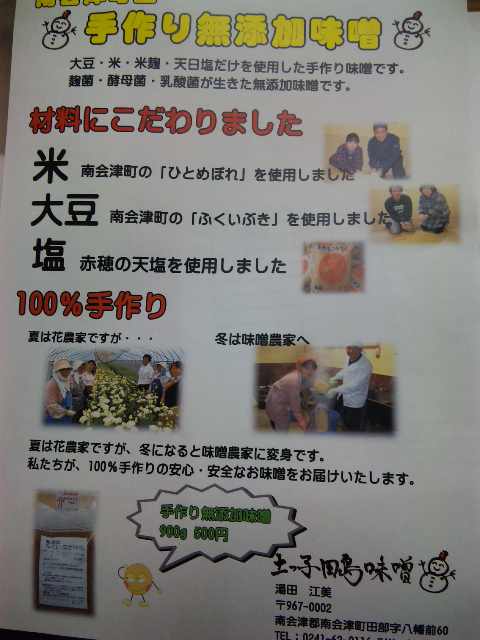 手作り無添加味噌
大豆・米・米麹・天日塩だけを使用した手作り味噌です。
麹菌・酵母菌・乳酸菌が生きた無添加味噌です。
材料にこだわりました
米 南会津町の「ひとめぼれ」を使用しました
大豆 南会津町の「ふくいぶき」を使用しました
塩 赤穂の天塩を使用しました
100%手作り
夏は花農家ですが・・・
冬は味噌農家へ
夏は花農家ですが、冬になると味噌農家に変身です。
私たちが、100%手作りの安心・安全なお味噌をお届けいたします。
手作り無添加味噌
900g 500円
土っ子田島味噌
湯田 江美
〒967-0002
南会津郡南会津町田部字八幡前60